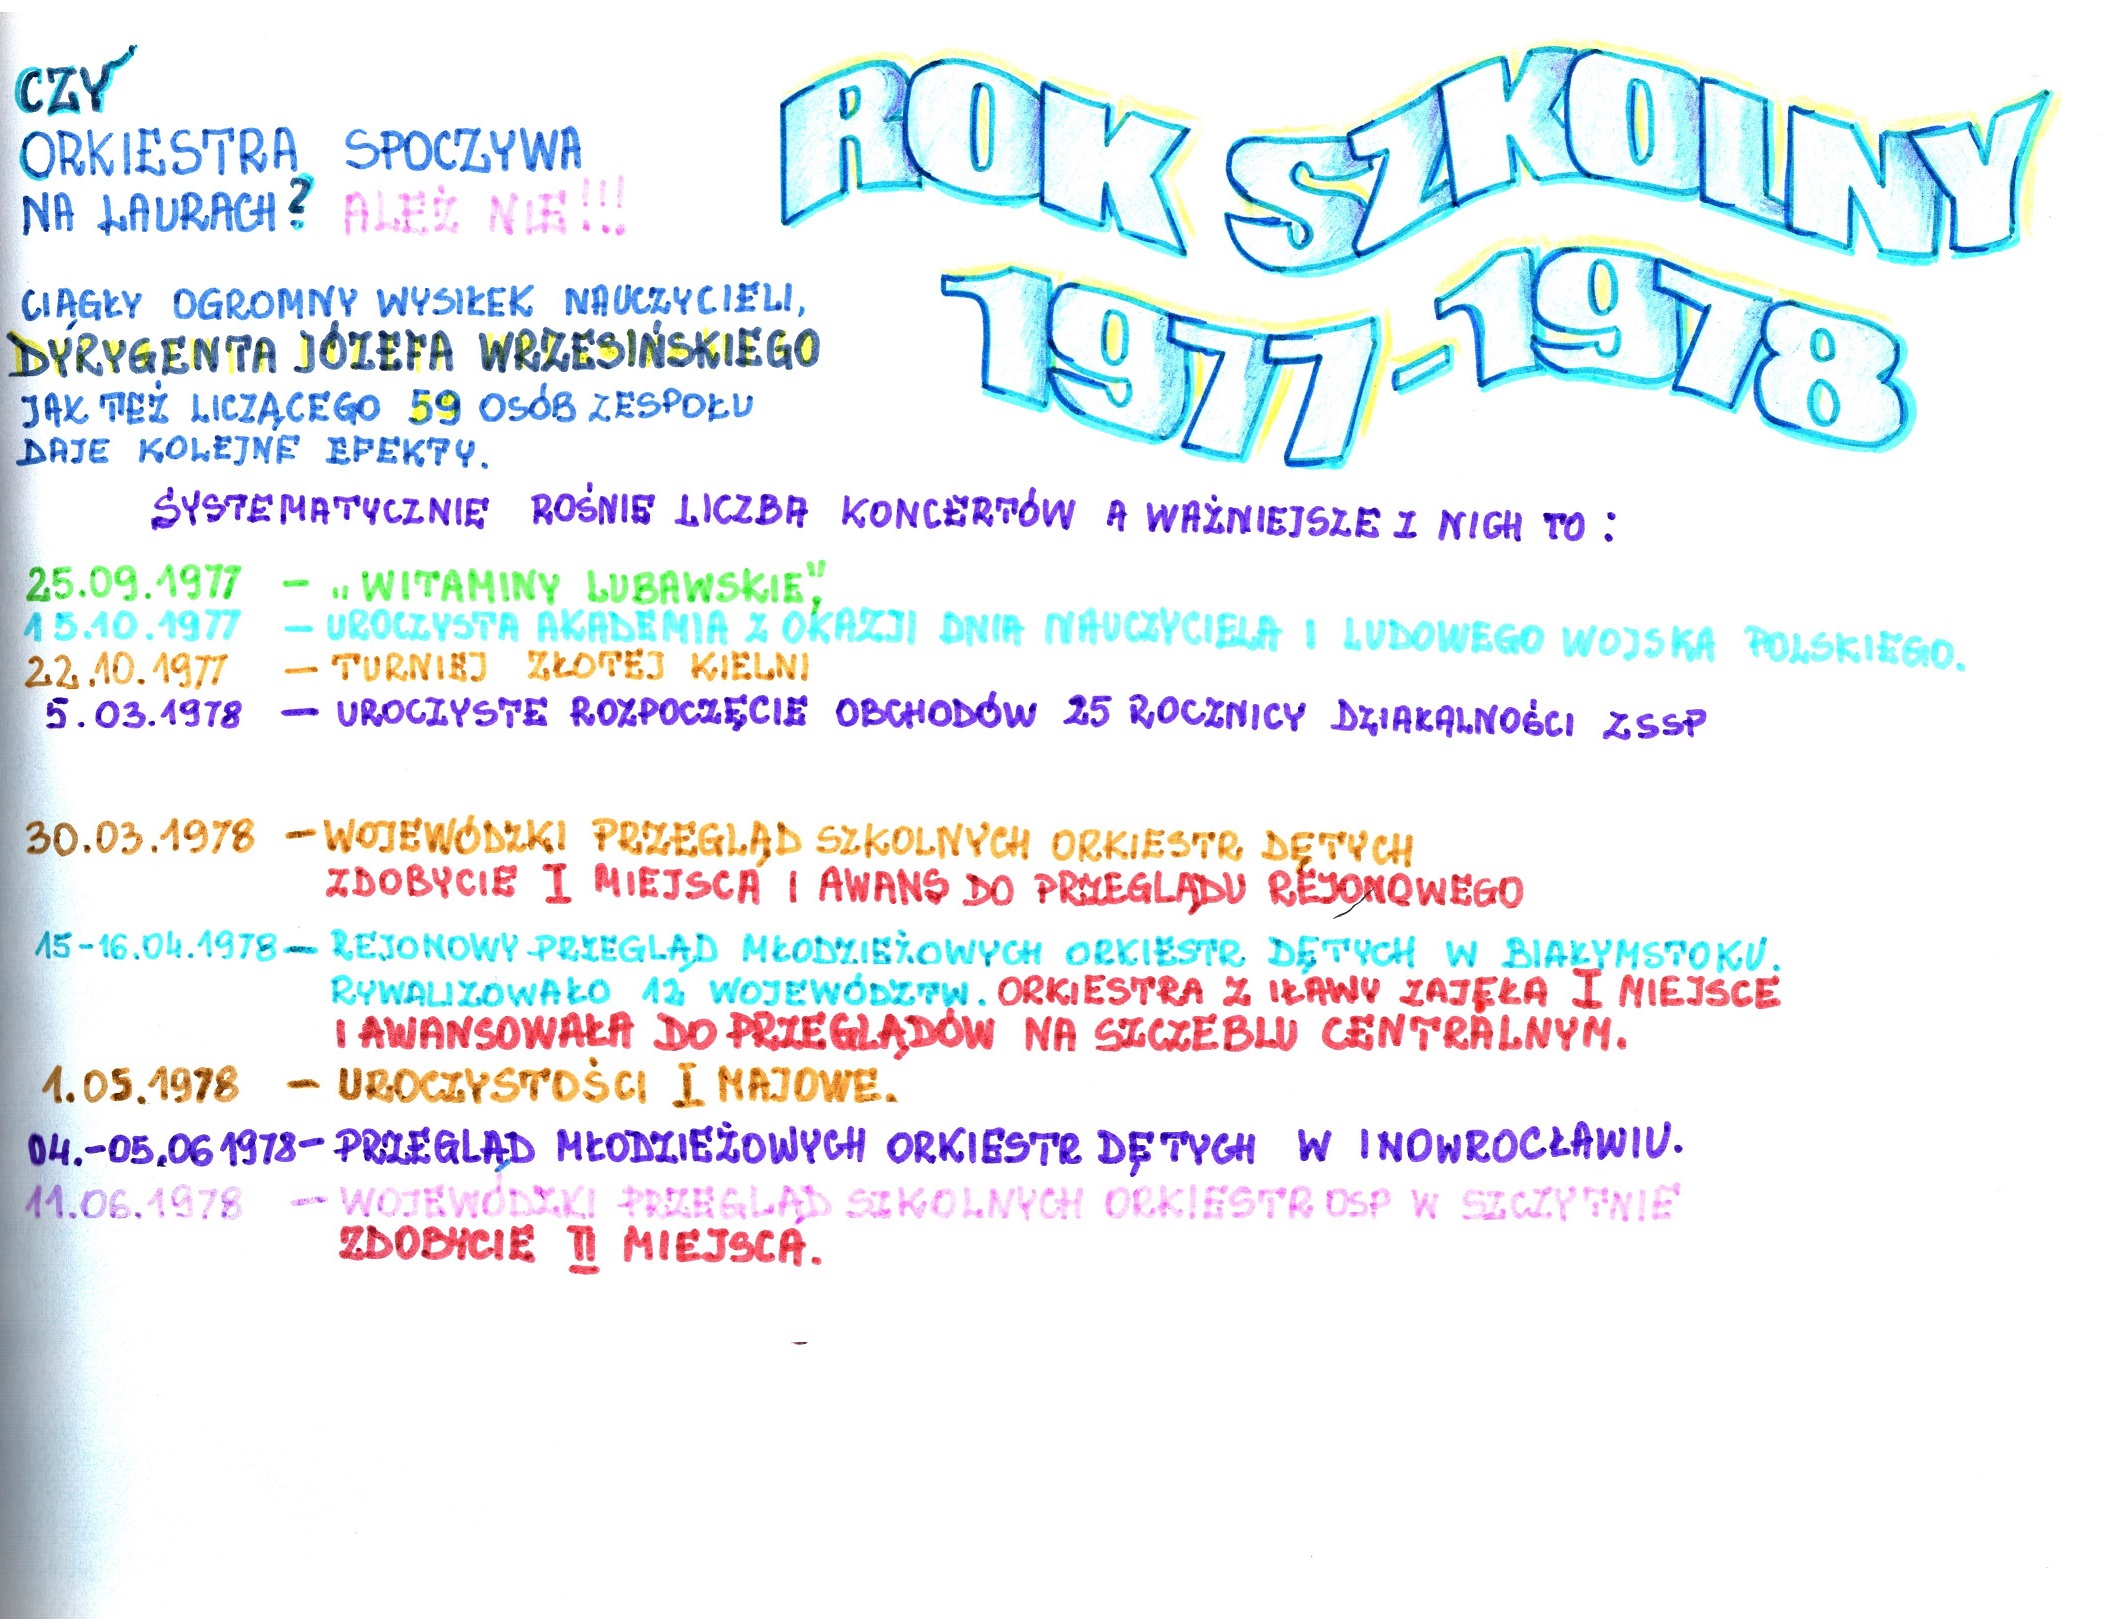 ROK SZKOLNY
1977-1978
CZY
ORKIESTRA SPOCZYWA
NA LAURACH? ALEŻ NIE!!!
CIĄGŁY OGROMNY WYSIŁEK NAUCZYCIELI,
DYRYGENTA JÓZEFA WRZESIŃSKIEGO
JAK TEŻ LICZĄCEGO 59 OSÓB ZESPOŁU
DAJE KOLEJNE EFEKTY.
SYSTEMATYCZNIE ROŚNIE LICZBA KONCERTÓW A WAŻNIEJSZE Z NICH TO :
25.09.1977 - „WITAMINY LUBAWSKIE",
15.10.1977 - UROCZYSTA AKADEMIA Z OKAZJI DNIA NAUCZYCIELA I LUDOWEGO WOJSKA POLSKIEGO.
22.10.1977 - TURNIEJ ZŁOTEJ KIELNI
5.03.1978 - UROCZYSTE ROZPOCZĘCIE OBCHODÓW 25 ROCZNICY DZIAŁALNOŚCI ZSSP
30.03.1978 - WOJEWÓDZKI PRZEGLĄD SZKOLNYCH ORKIESTR DĘTYCH
ZDOBYCIE I MIEJSCA I AWANS DO PRZEGLĄDU REJONOWEGO
15-16.04.1978 - REJONOWY PRZEGLĄD MŁODZIEŻOWYCH ORKIESTR DĘTYCH W BIAŁYMSTOKU.
RYWALIZOWAŁO 12 WOJEWÓDZTW. ORKIESTRA Z IŁAWY ZAJĘŁA I MIEJSCE
I AWANSOWAŁA DO PRZEGLĄDÓW NA SZCZEBLU CENTRALNYM.
1.05.1978 - UROCZYSTOŚCI I MAJOWE.
04.-05.06 1978 - PRZEGLĄD MŁODZIEŻOWYCH ORKIESTR DĘTYCH W INOWROCŁAWIU.
11.06.1978 - WOJEWÓDZKI PRZEGLĄD SZKOLNYCH ORKIESTR OSP W SZCZYTNIE
ZDOBYCIE II MIEJSCA.